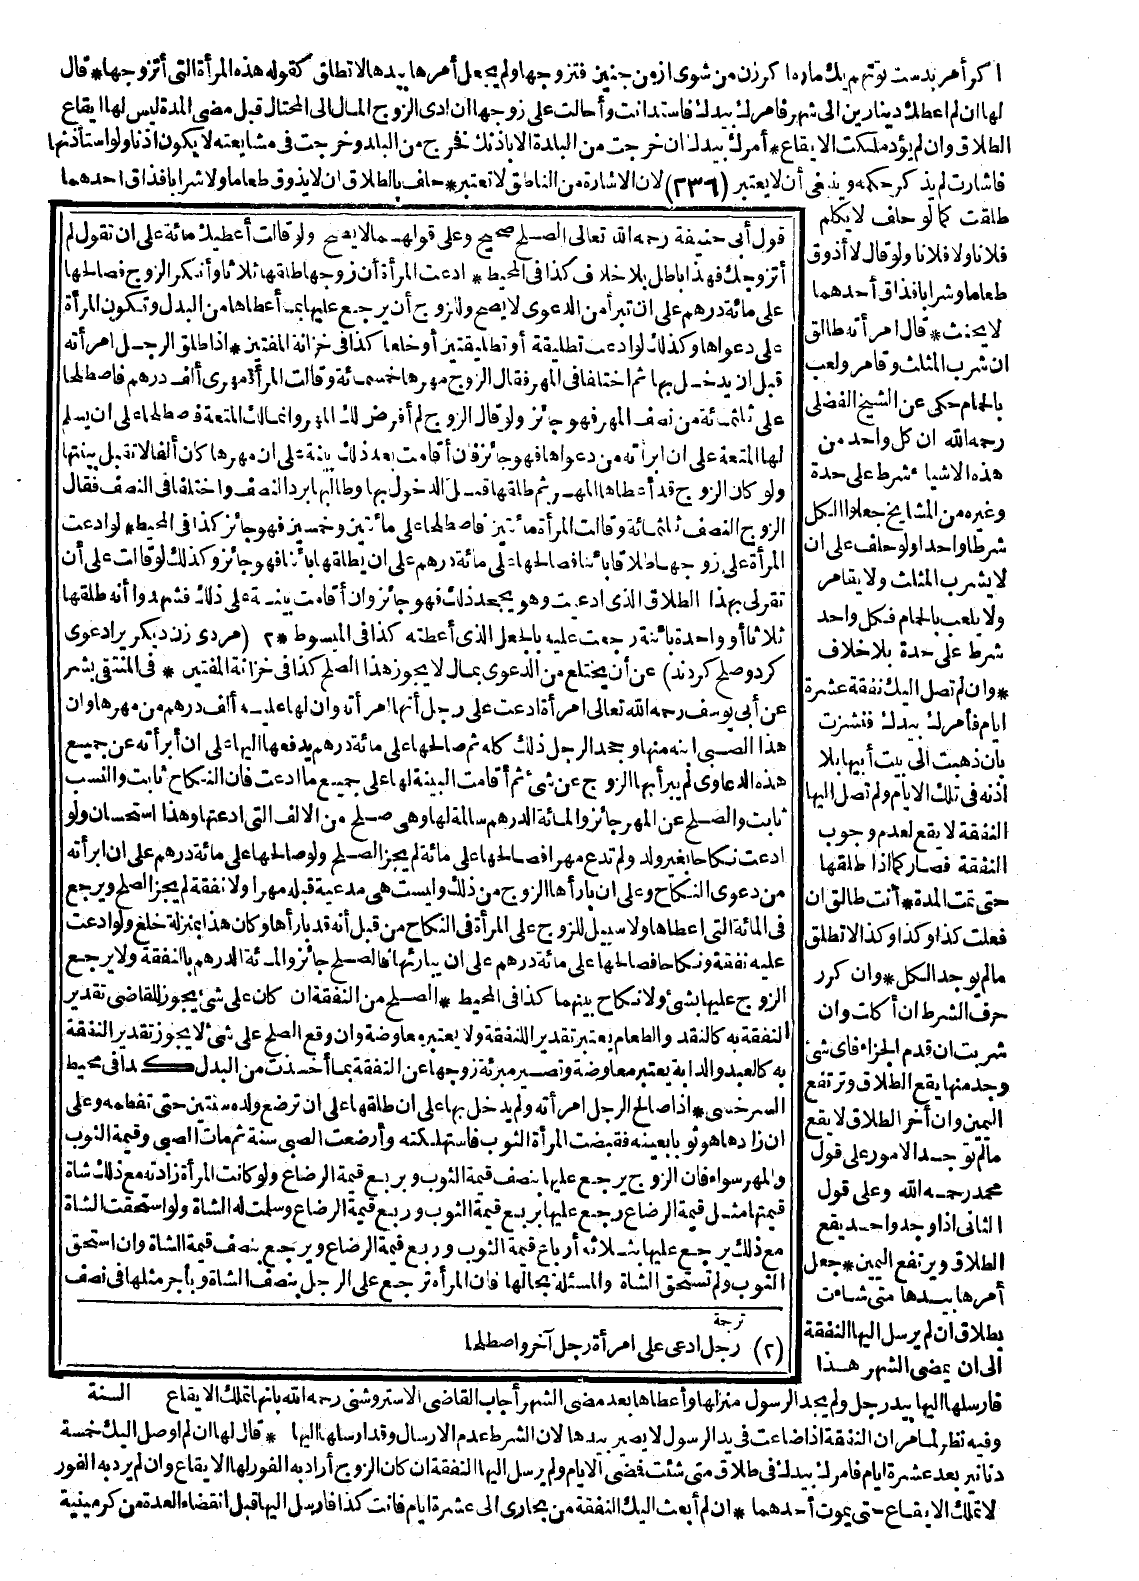 اكرأمر بدست توتهم يك ماره اكرزن من شوى ازين جنين فتزوجها ولم يجعل أمرها بيدها لا تطلق كقوله هذه المرأة التى أتزوجها * قال
لها ان لم اعطك دينارين الى شهر فامرك بيدك فاستدانت وأحالت على زوجها ان ادى الزوج المال الى المحتال قبل مضى المدة ليس لها ايقاع
الطلاق وان لم يؤد ملكت الايقاع * أمرك بيدك ان خرجت من البلدة الا باذنك فخرج من البلد وخرجت فى مشايعته لا يكون اذنا ولو استأذنها
فاشارت لم يذكر حكمه وينبغى أن لا يعتبر (٢٣٦) لان الاشارة من الناطق لا تعتبر * حلف بالطلاق ان لا يذوق طعاما ولا شرابا فذاق احدهما
طلقت كما لو حلف لا يكلم
فلانا ولا فلانا ولو قال لا أذوق
طعاما وشرابا فذاق أحدهما
لا يحنث * قال امرأته طالق
ان شرب المثلث وقامر ولعب
بالحمام حكى عن الشيخ الفضلى
رحمه الله ان كل واحد من
هذه الاشياء شرط على حدة
وغيره من المشايخ جعلوا الكل
شرطا واحدا ولو حلف على ان
لا يشرب المثلث ولا يقامر
ولا يلعب بالحمام فكل واحد
شرط على حدة بلا خلاف
* وان لم تصل اليك نفقة عشرة
ايام فأمرك بيدك فنشزت
بان ذهبت الى بيت أبيها بلا
اذنه فى تلك الايام ولم تصل اليها
النفقة لا يقع لعدم وجوب
النفقة فصار كما اذا طلقها
حتى تمت المدة * أنت طالق ان
فعلت كذا وكذا وكذا لا تطلق
مالم يوجد الكل * وان كرر
حرف الشرط ان أكلت وان
شربت ان قدم الجزاء فاى شئ
وجد منها يقع الطلاق وترتفع
اليمين وان أخر الطلاق لا يقع
مالم توجد الامور على قول
محمد رحمه الله وعلى قول
الثانى اذا وجد واحد يقع
الطلاق ويرتفع اليمين * جعل
أمرها بيدها متى شاءت
بطلاق ان لم يرسل اليها النفقة
الى ان يمضى الشهر هذا
قول أبى حنيفة رحمه الله تعالى الصلح صحيح وعلى قولهما لا يصح ولو قالت أعطيك مائة على ان تقول لم
أتزوجك فهذا باطل بلا خلاف كذا فى المحيط * ادعت المرأة أن زوجها طلقها ثلاثا وأنكر الزوج فصالحها
على مائة درهم على ان تبرأ من الدعوى لا يصح وللزوج أن يرجع عليها بما أعطاها من البدل وتكون المرأة
على دعواها وكذلك لو ادعت تطليقة أو تطليقتين أو خلعا كذا فى خزانة المفتين * اذا طلق الرجل امرأته
قبل ان يدخل بها ثم اختلفا فى المهر فقال الزوج مهرها خمسمائة وقالت المرأة مهرى ألف درهم فاصطلحا
على ثلثمائة من نصف المهر فهو جائز ولو قال الزوج لم أفرض لك المهر وانما لك المتعة فاصطلحا على ان يسلم
لها المتعة على ان ابرأته من دعواها فهو جائز فان أقامت بعد ذلك بينة على ان مهرها كان ألفا لا تقبل بينتها
ولو كان الزوج قد أعطاها المهر ثم طلقها قبل الدخول بها وطالبها برد النصف واختلفا فى النصف فقال
الزوج النصف ثلثمائة وقالت المرأة مائتين فاصطلحا على مائتين وخمسين فهو جائز كذا فى المحيط * لو ادعت
المرأة على زوجها طلاقا بائنا فصالحها على مائة درهم على ان يطلقها بائنا فهو جائز وكذلك لو قالت على أن
تقرلى بهذا الطلاق الذى ادعيت وهو يجحد ذلك فهو جائز وان أقامت بينة على ذلك فشهدوا أنه طلقها
ثلاثا أو واحدة بائنة رجعت عليه بالجعل الذى أعطته كذا فى المبسوط * ٢ (مردى زن ديكر يرا دعوى
كرد وصلح كردند) عن أن يختلع من الدعوى بمال لا يجوز هذا الصلح كذا فى خزانة المفتين * فى المنتقى بشر
عن أبى يوسف رحمه الله تعالى امرأة ادعت على رجل أنها امرأته وان لها عليه ألف درهم من مهرها وان
هذا الصبى ابنه منها وجحد الرجل ذلك كله ثم صالحها على مائة درهم يدفعها اليها على ان أبرأته عن جميع
هذه الدعاوى لم يبرأ بها الزوج عن شئ ثم أقامت البينة لها على جميع ما ادعت فان النكاح ثابت والنسب
ثابت والصلح عن المهر جائز والمائة الدرهم سالمة لها وهى صلح من الالف التى ادعتها وهذا استحسان ولو
ادعت نكاحا بغير ولد ولم تدع مهرا فصالحها على مائة لم يجز الصلح ولو صالحها على مائة درهم على ان ابرأته
من دعوى النكاح وعلى ان بارأها الزوج من ذلك وليست هى مدعية قبله مهرا ولا نفقة لم يجز الصلح ويرجع
فى المائة التى اعطاها ولا سبيل للزوج على المرأة فى النكاح من قبل أنه قد بارأها وكان هذا بمنزلة خلع ولو ادعت
عليه نفقة ونكاحا فصالحها على مائة درهم على ان يبارئها فالصلح جائز والمائة الدرهم بالنفقة ولا يرجع
الزوج عليها بشئ ولا نكاح بينهما كذا فى المحيط * الصلح من النفقة ان كان على شئ يجوز للقاضى تقدير
النفقة به كالنقد والطعام يعتبر تقديرا للنفقة ولا يعتبر معاوضة وان وقع الصلح على شئ لا يجوز تقدير النفقة
به كالعبد والدابة يعتبر معاوضة وتصير مبرئة زوجها عن النفقة بما أخذت من البدل كذا فى محيط
السرخسى * اذا صالح الرجل امرأته ولم يدخل بها على ان طلقها على ان ترضع ولده سنتين حتى تفطمه وعلى
ان زادها هو ثوبا بعينه فقبضت المرأة الثوب فاستهلكته وأرضعت الصبى سنة ثم مات الصبى وقيمة الثوب
والمهر سواء فان الزوج يرجع عليها بنصف قيمة الثوب وبربع قيمة الرضاع ولو كانت المرأة زادته مع ذلك شاة
قيمتها مثل قيمة الرضاع رجع عليها بربع قيمة الثوب وربع قيمة الرضاع وسلمت له الشاة ولو استحقت الشاة
مع ذلك يرجع عليها بثلاثة أرباع قيمة الثوب وربع قيمة الرضاع ويرجع بنصف قيمة الشاة وان استحق
الثوب ولم تستحق الشاة والمسئلة بحالها فان المرأة ترجع على الرجل بنصف الشاة وبأجر مثلها فى نصف
ترجمة
(٢) رجل ادعى على امرأة رجل آخر واصطلحا
فارسلها اليها بيد رجل ولم يجد الرسول منزلها وأعطاها بعد مضى الشهر أجاب القاضى الاستروشنى رحمه الله بانها تملك الايقاع السنة
وفيه نظر لما مر ان النفقة اذا ضاعت فى يد الرسول لا يصير بيدها لان الشرط عدم الارسال وقد ارسلها اليها * قال لها ان لم اوصل اليك خمسة
دنانير بعد عشرة ايام فامرك بيدك فى طلاق متى شئت فمضى الايام ولم يرسل اليها النفقة ان كان الزوج أراد به الفور لها الايقاع وان لم يرد به الفور
لا تملك الايقاع حتى يموت أحدهما * ان لم أبعث اليك النفقة من بخارى الى عشرة ايام فانت كذا فارسل اليها قبل انقضاء العدة من كرمينية